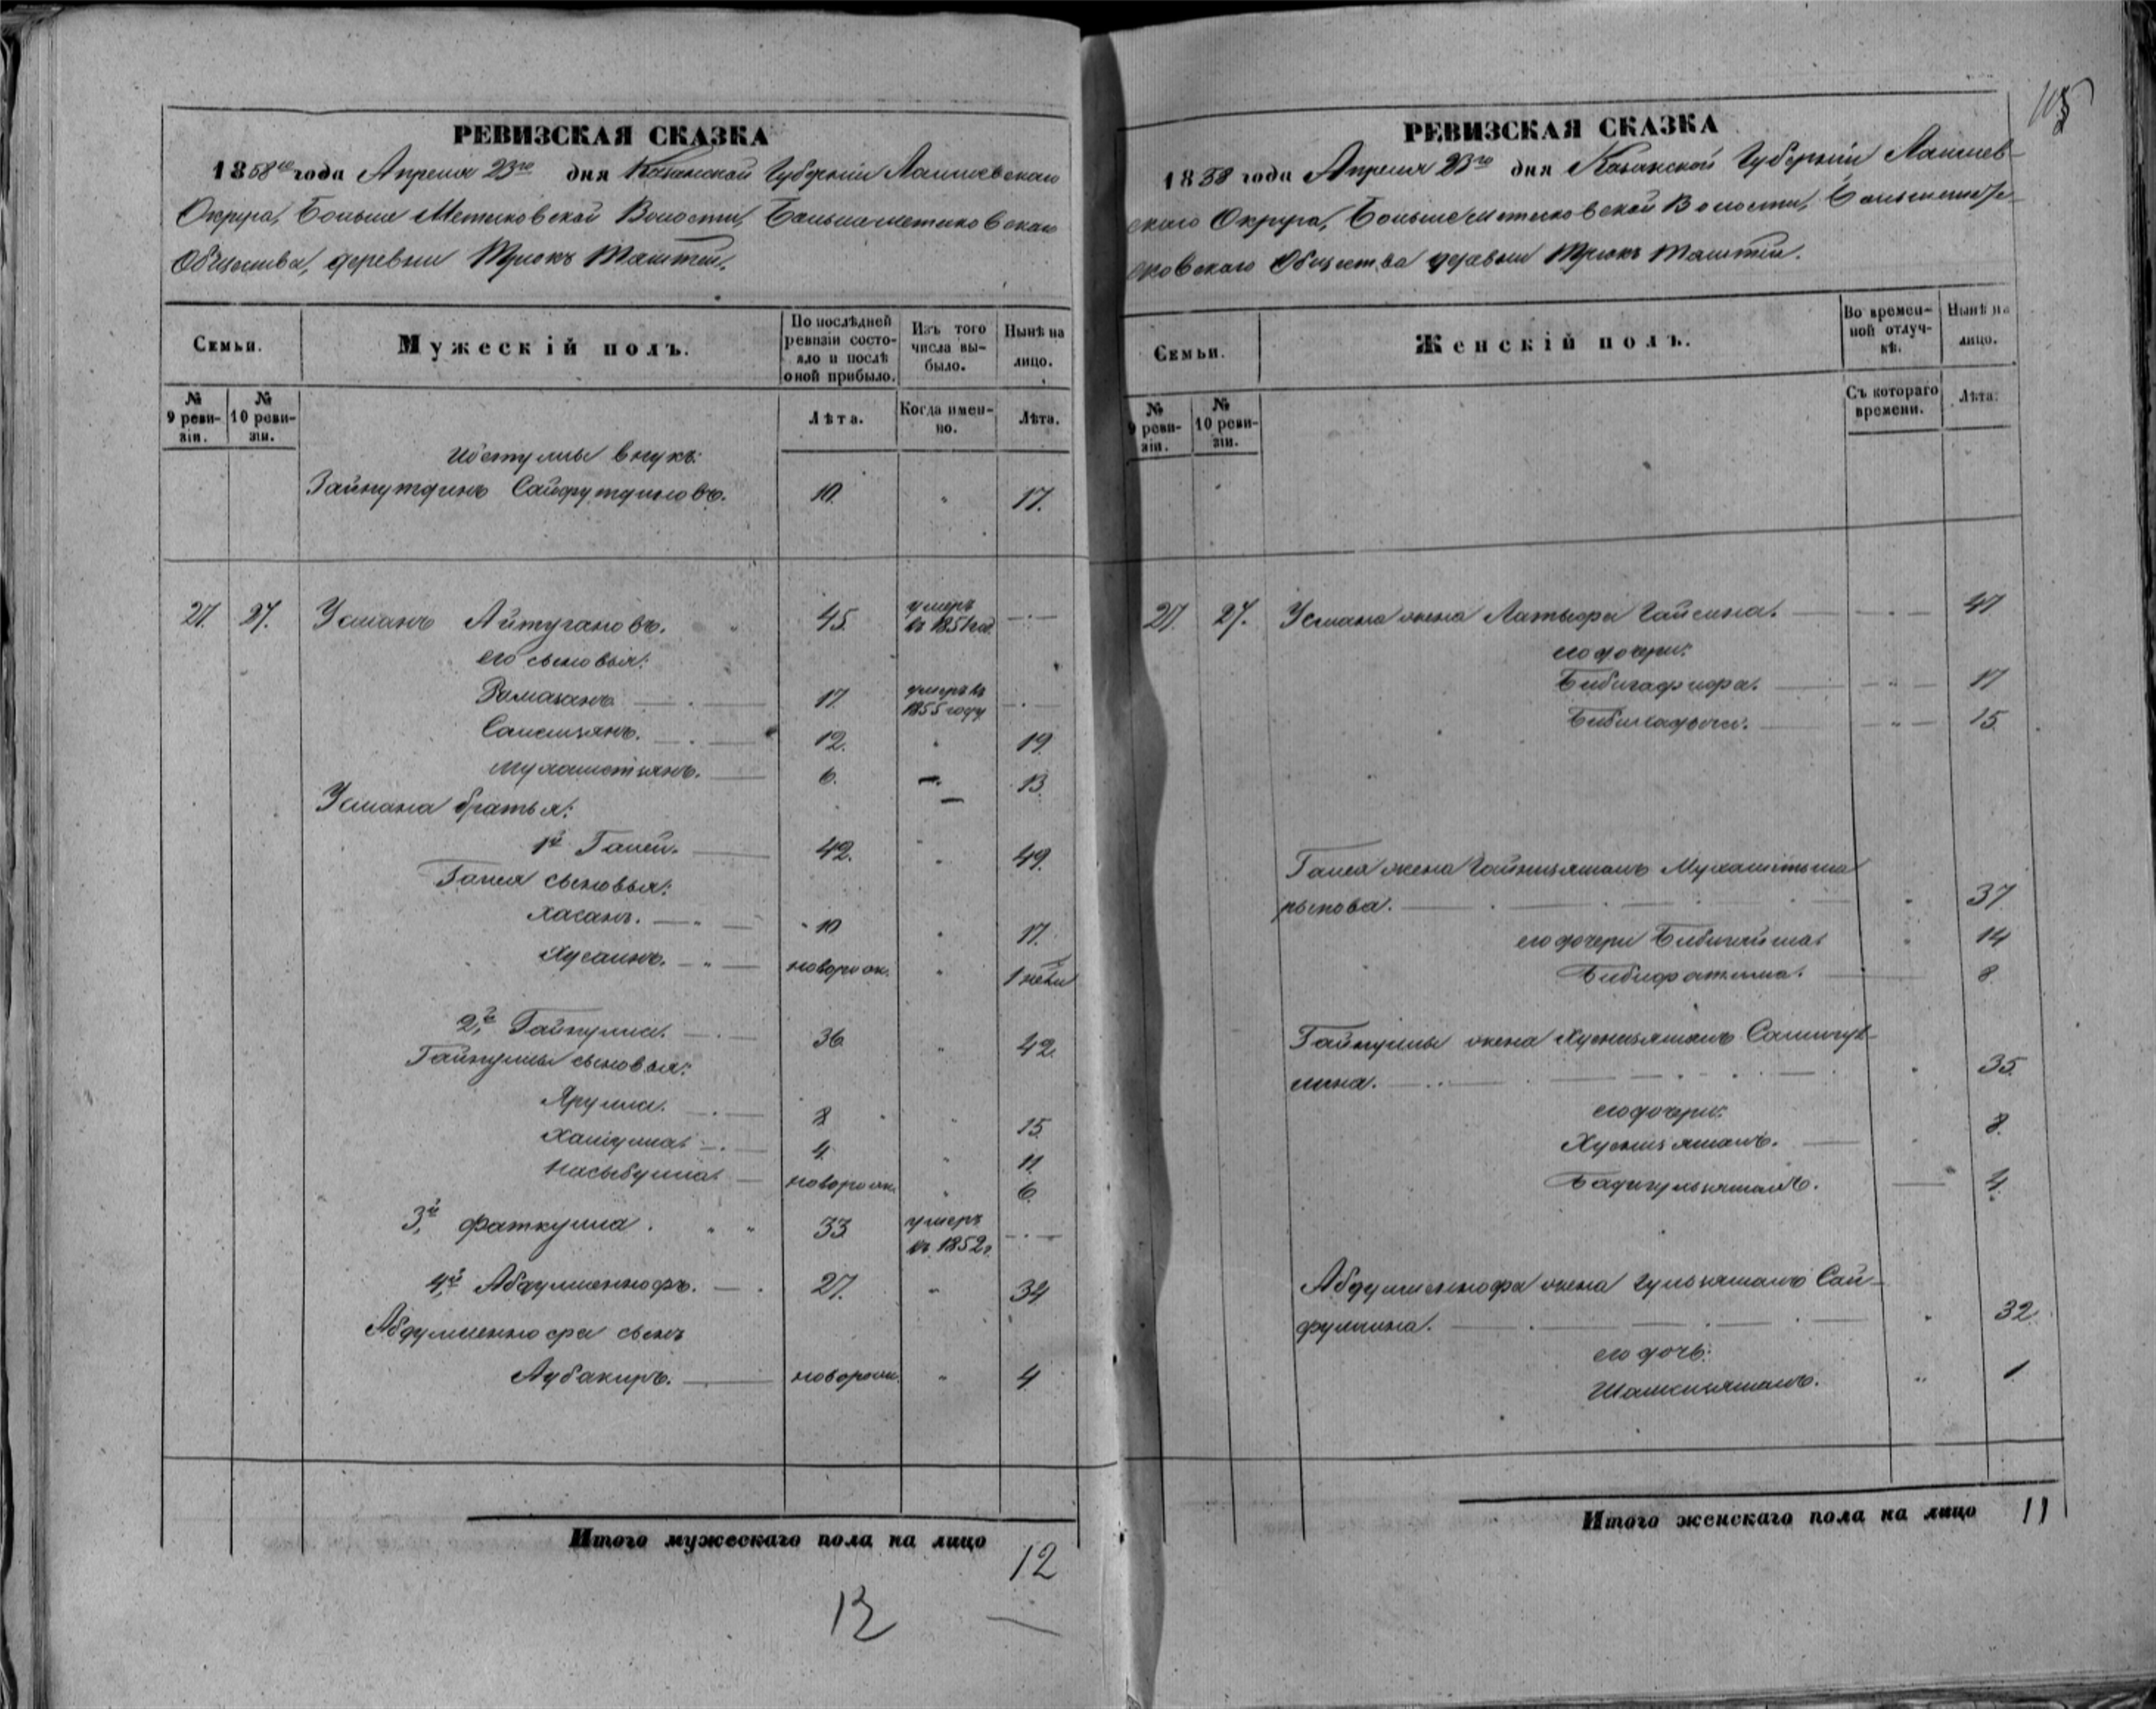 РЕВИЗСКАЯ СКАЗКА
1858го года Апреля 23го дня Казанской Губерніи Лаишевскаго
Округа, Больше Метесковской Волости, Большеметесковскаго
Общества, деревни Трюкъ Тямтей.
Семьи.
Мужескій полъ.
По послѣдней ревизіи состояло и послѣ оной прибыло.
Изъ того числа выбыло.
Нынѣ на лицо.
№ 9 ревизіи.
№ 10 ревизіи.
Лѣта.
Когда именно.
Лѣта.
внукъ:
Зайнутдинъ Сайфутдиновъ. 10. " 17.
27. 27. Усманъ Айтугановъ. 45. умеръ въ 1851 год.
его сыновья:
Рамазанъ 17. умеръ въ 1855 году
12. " 19.
Мухаметзянъ. 6. 13.
Усмана братья:
1й Галей. 42. " 49.
Галея сыновья:
Хасанъ. 10 " 17.
Хусаинъ. новорож. " 1 недѣли
2й Гайнулла. 36 " 42.
Гайнуллы сыновья:
Ярулла. 8 " 15.
4. " 11.
Насыбулла. новорож. " 6.
3й Фаткулла. 33 умеръ въ 1852 г.
4й Абдулменнофъ. 27. " 34
Абдулменнофа сынъ
Аубакиръ. новорож. " 4.
Итого мужескаго пола на лицо 12
12
РЕВИЗСКАЯ СКАЗКА
1858 года Апреля 23го дня Казанской Губерніи Лаишев-
скаго Округа, Большеметесковской Волости, Большемете-
сковскаго Общества деревни Трюкъ Тямтей.
Семьи.
Женскій полъ.
Во временной отлучкѣ.
Нынѣ на лицо.
№ 9 ревизіи.
№ 10 ревизіи.
Съ котораго времени.
Лѣта.
27. 27. Усмана жена Латыфа Гайсина. 47
его дочери:
Бибигафифа. 17
15.
Галея жена Мухаметьша-
рыпова. 37
его дочери 14
Бибифатима. 8
Гайнуллы жена Хуснизямалъ
лина. 35.
его дочери:
Хуснизямалъ. 8.
Бадигульзямалъ. 4.
Абдулменнофа жена Гульзямалъ Сай-
фуллина. 32.
его дочь:
Шамсизямалъ. 1
Итого женскаго пола на лицо 11